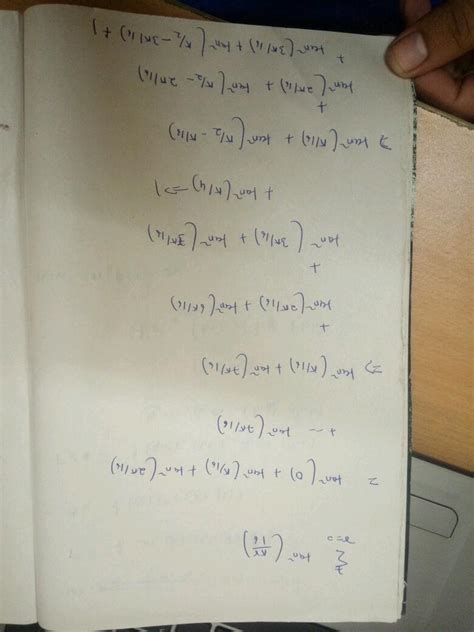 7
Σ tan²(πr/16)
r=0
= tan²(0) + tan²(π/16) + tan²(2π/16)
+ ... tan²(7π/16)
=> tan²(π/16) + tan²(7π/16)
+
tan²(2π/16) + tan²(6π/16)
+
tan²(3π/16) + tan²(5π/16)
+ tan²(π/4) => 1
=> tan²(π/16) + tan²(π/2 - π/16)
+
tan²(2π/16) + tan²(π/2 - 2π/16)
+ tan²(3π/16) + tan²(π/2 - 3π/16) + 1